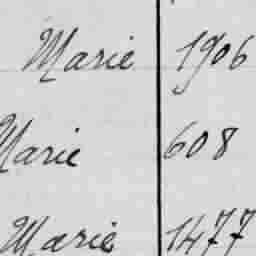 Marie 1906
Marie 608
Marie 1477